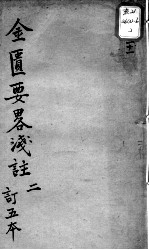 金匱要畧淺註
二
訂五本